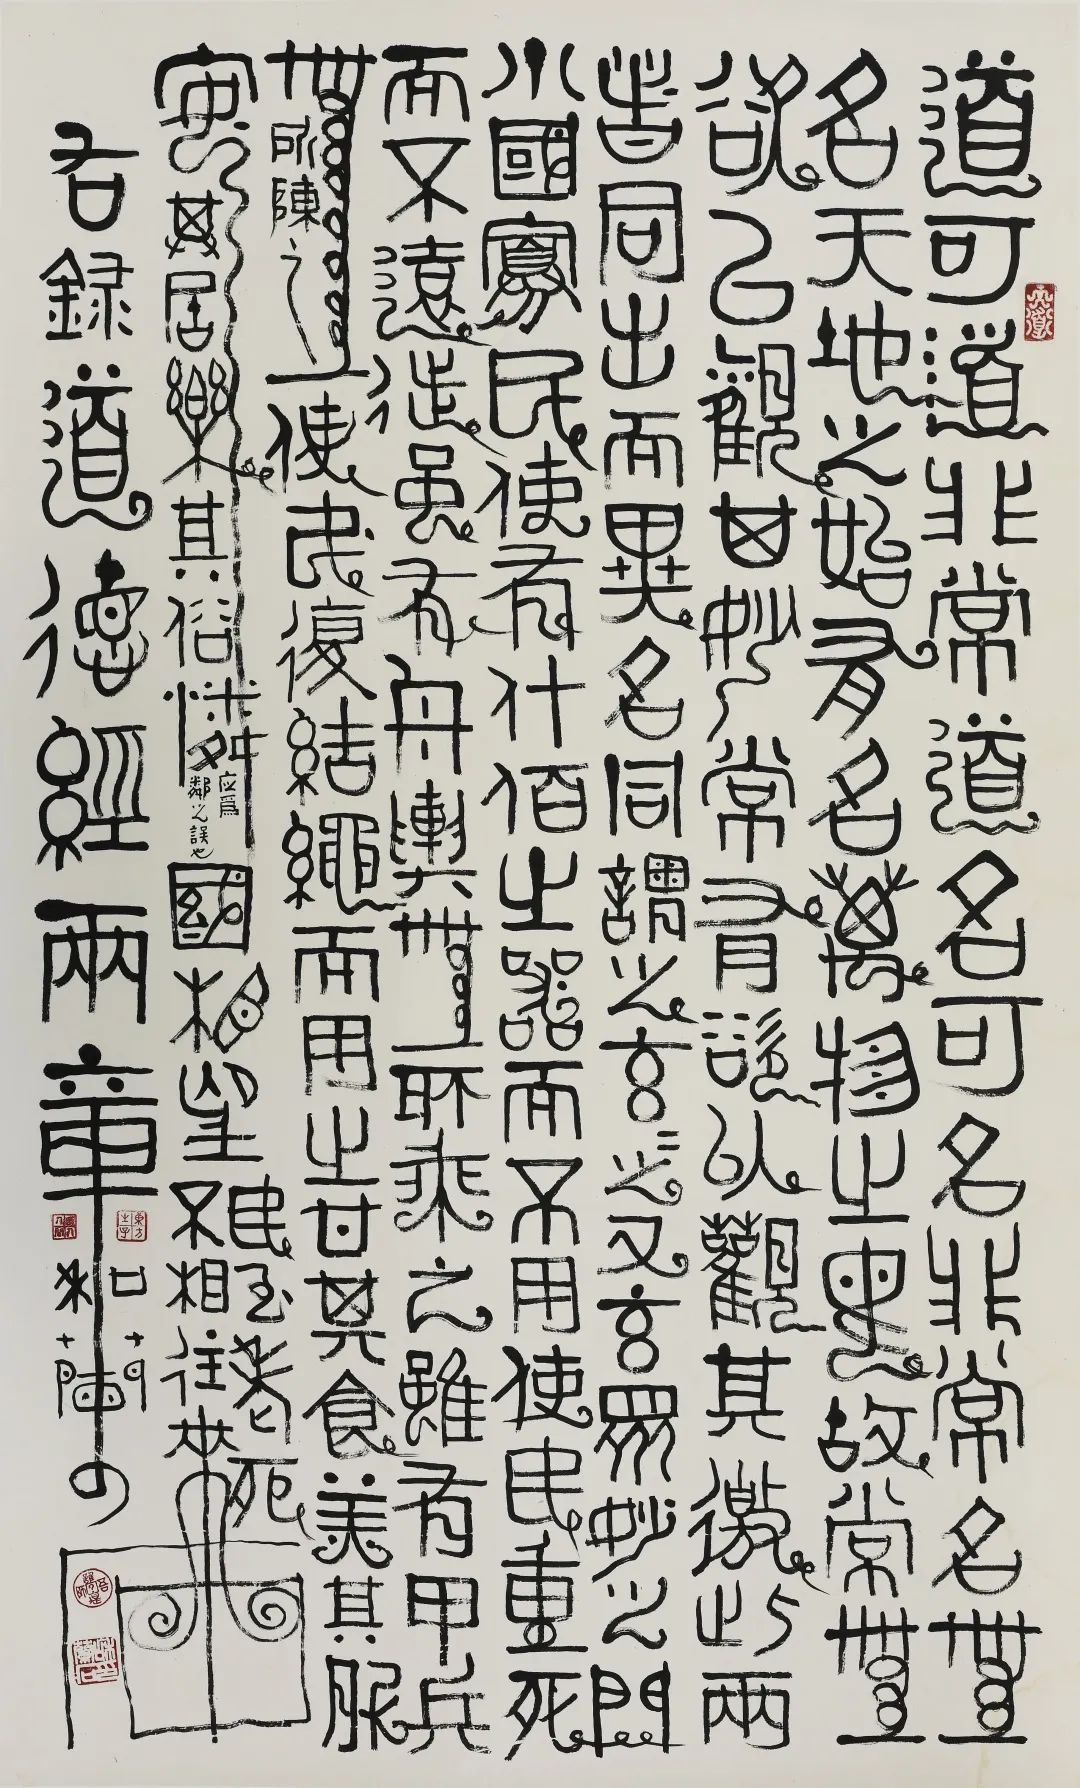 道可道非常道名可名非常名無
名天地之始有名萬物之母故常無
欲以觀其妙常有欲以觀其徼此兩
者同出而異名同謂之玄〻之又玄眾妙之門
小國寡民使有什佰之器而不用使民重死
而不遠徙雖有舟輿無所乘之雖有甲兵
無所陳之使民復結繩而用之甘其食美其服
安其居樂其俗憐國相望民至老死不相往來
应爲
鄰之誤也
右錄道德經兩章
東方之子